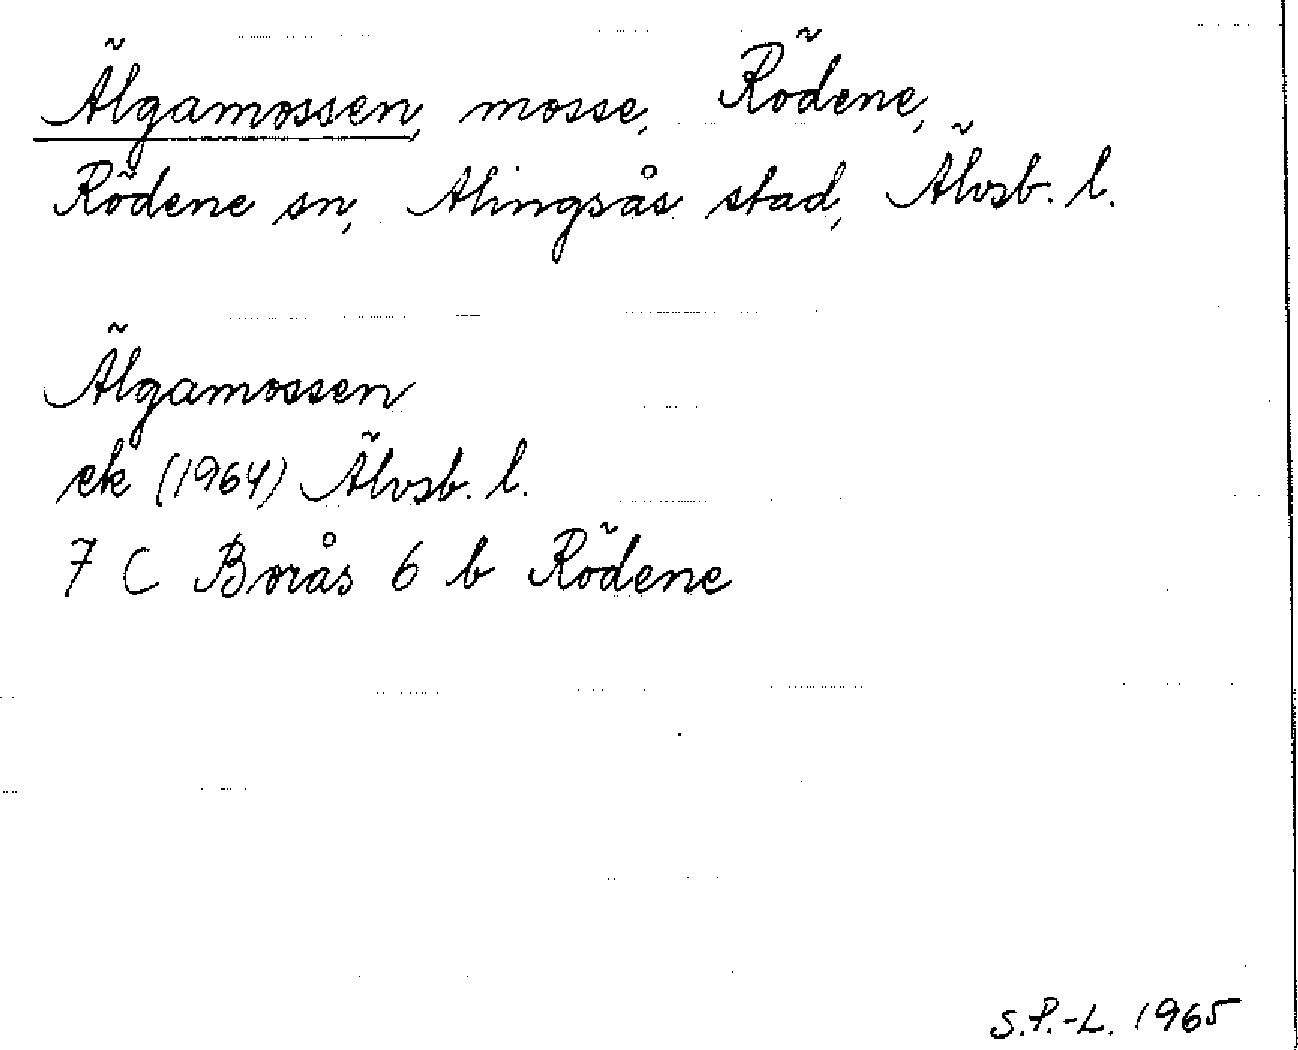 Älgamossen, mosse, Rödene,
Rödene sn, Alingsås stad, Älvsb. l.
Älgamossen
ek (1964) Älvsb. l.
7 C Borås 6 b Rödene
S.P.-L. 1965